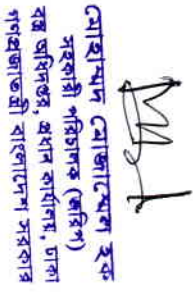 মোহাম্মদ মোজাম্মেল হক
সহকারী পরিচালক (জরিপ)
বস্ত্র অধিদপ্তর, প্রধান কার্যালয়, ঢাকা
গণপ্রজাতন্ত্রী বাংলাদেশ সরকার